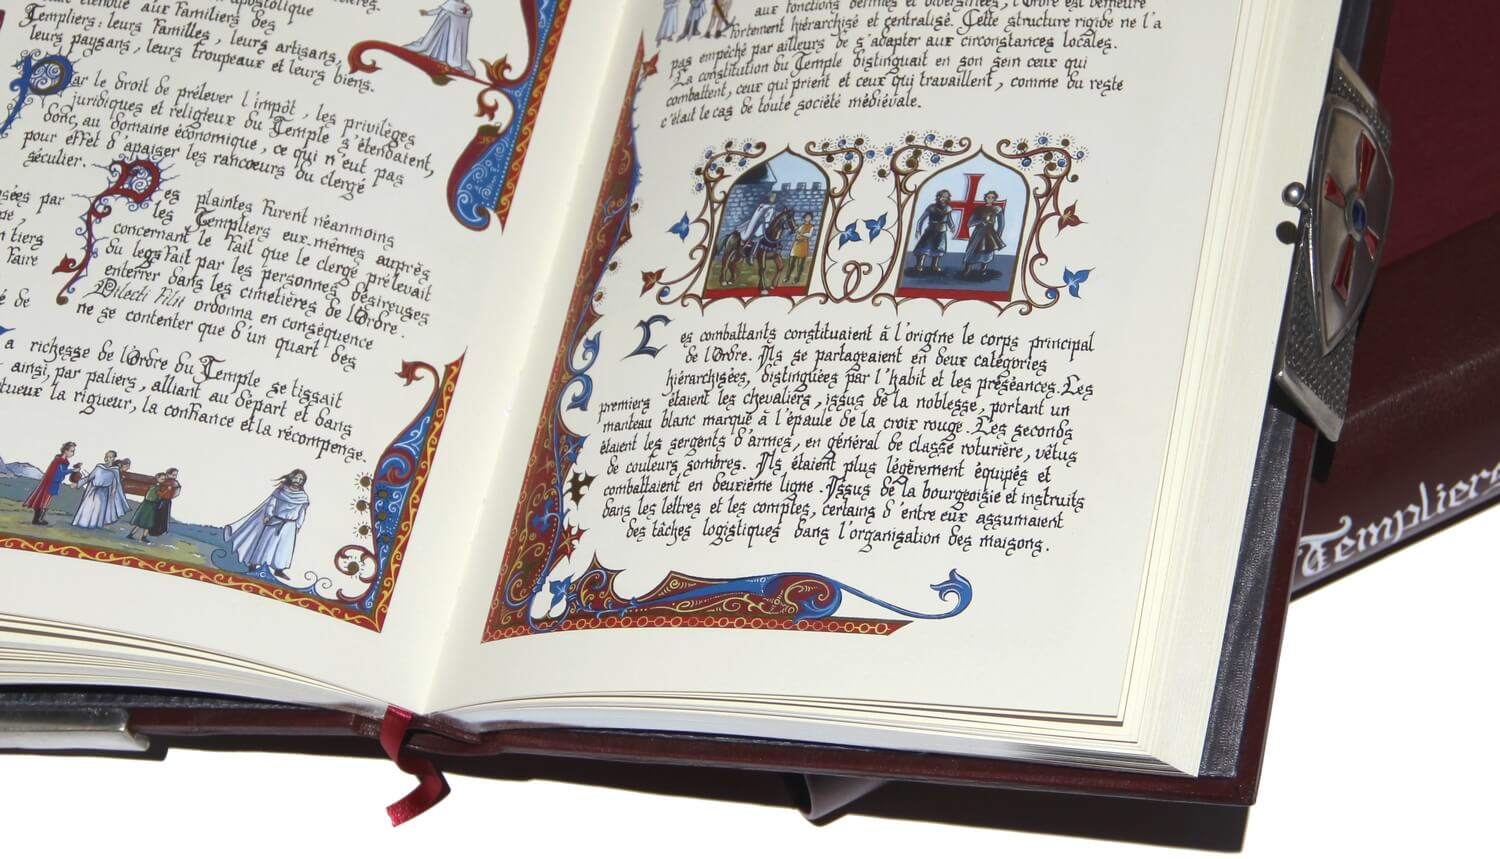 apostolique
aux Familiers des
Templiers: leurs Familles, leurs artisans,
leurs paysans, leurs troupeaux et leurs biens.
Par le droit de prélever l'impôt, les privilèges
juridiques et religieux du Temple s'étendaient,
donc, au domaine économique, ce qui n'eut pas
pour effet d'apaiser les rancoeurs du clergé
séculier.
Des plaintes furent néanmoins
les Templiers eux-mêmes auprès
concernant le fait que le clergé prélevait
du legs fait par les personnes désireuses
enterrer dans les cimetières de l'Ordre.
Dilecti Filii ordonna en conséquence
ne se contenter que d'un quart des
par
tiers
Faire
de
a richesse de l'Ordre du Temple se tissait
ainsi, par paliers, alliant au départ et dans
la rigueur, la confiance et la récompense.
aux fonctions définies et diversifiées, l'Ordre est demeuré
fortement hiérarchisé et centralisé. Cette structure rigide ne l'a
pas empêché par ailleurs de s'adapter aux circonstances locales.
La constitution du Temple distinguait en son sein ceux qui
combattent, ceux qui prient et ceux qui travaillent, comme du reste
c'était le cas de toute société médiévale.
Les combattants constituaient à l'origine le corps principal
de l'Ordre. Ils se partageaient en deux catégories
hiérarchisées, distinguées par l'habit et les préséances. Les
premiers étaient les chevaliers, issus de la noblesse, portant un
manteau blanc marqué à l'épaule de la croix rouge. Les seconds
étaient les sergents d'armes, en général de classe roturière, vêtus
de couleurs sombres. Ils étaient plus légèrement équipés et
combattaient en deuxième ligne. Issus de la bourgeoisie et instruits
dans les lettres et les comptes, certains d'entre eux assumaient
des tâches logistiques dans l'organisation des maisons.
Templiers